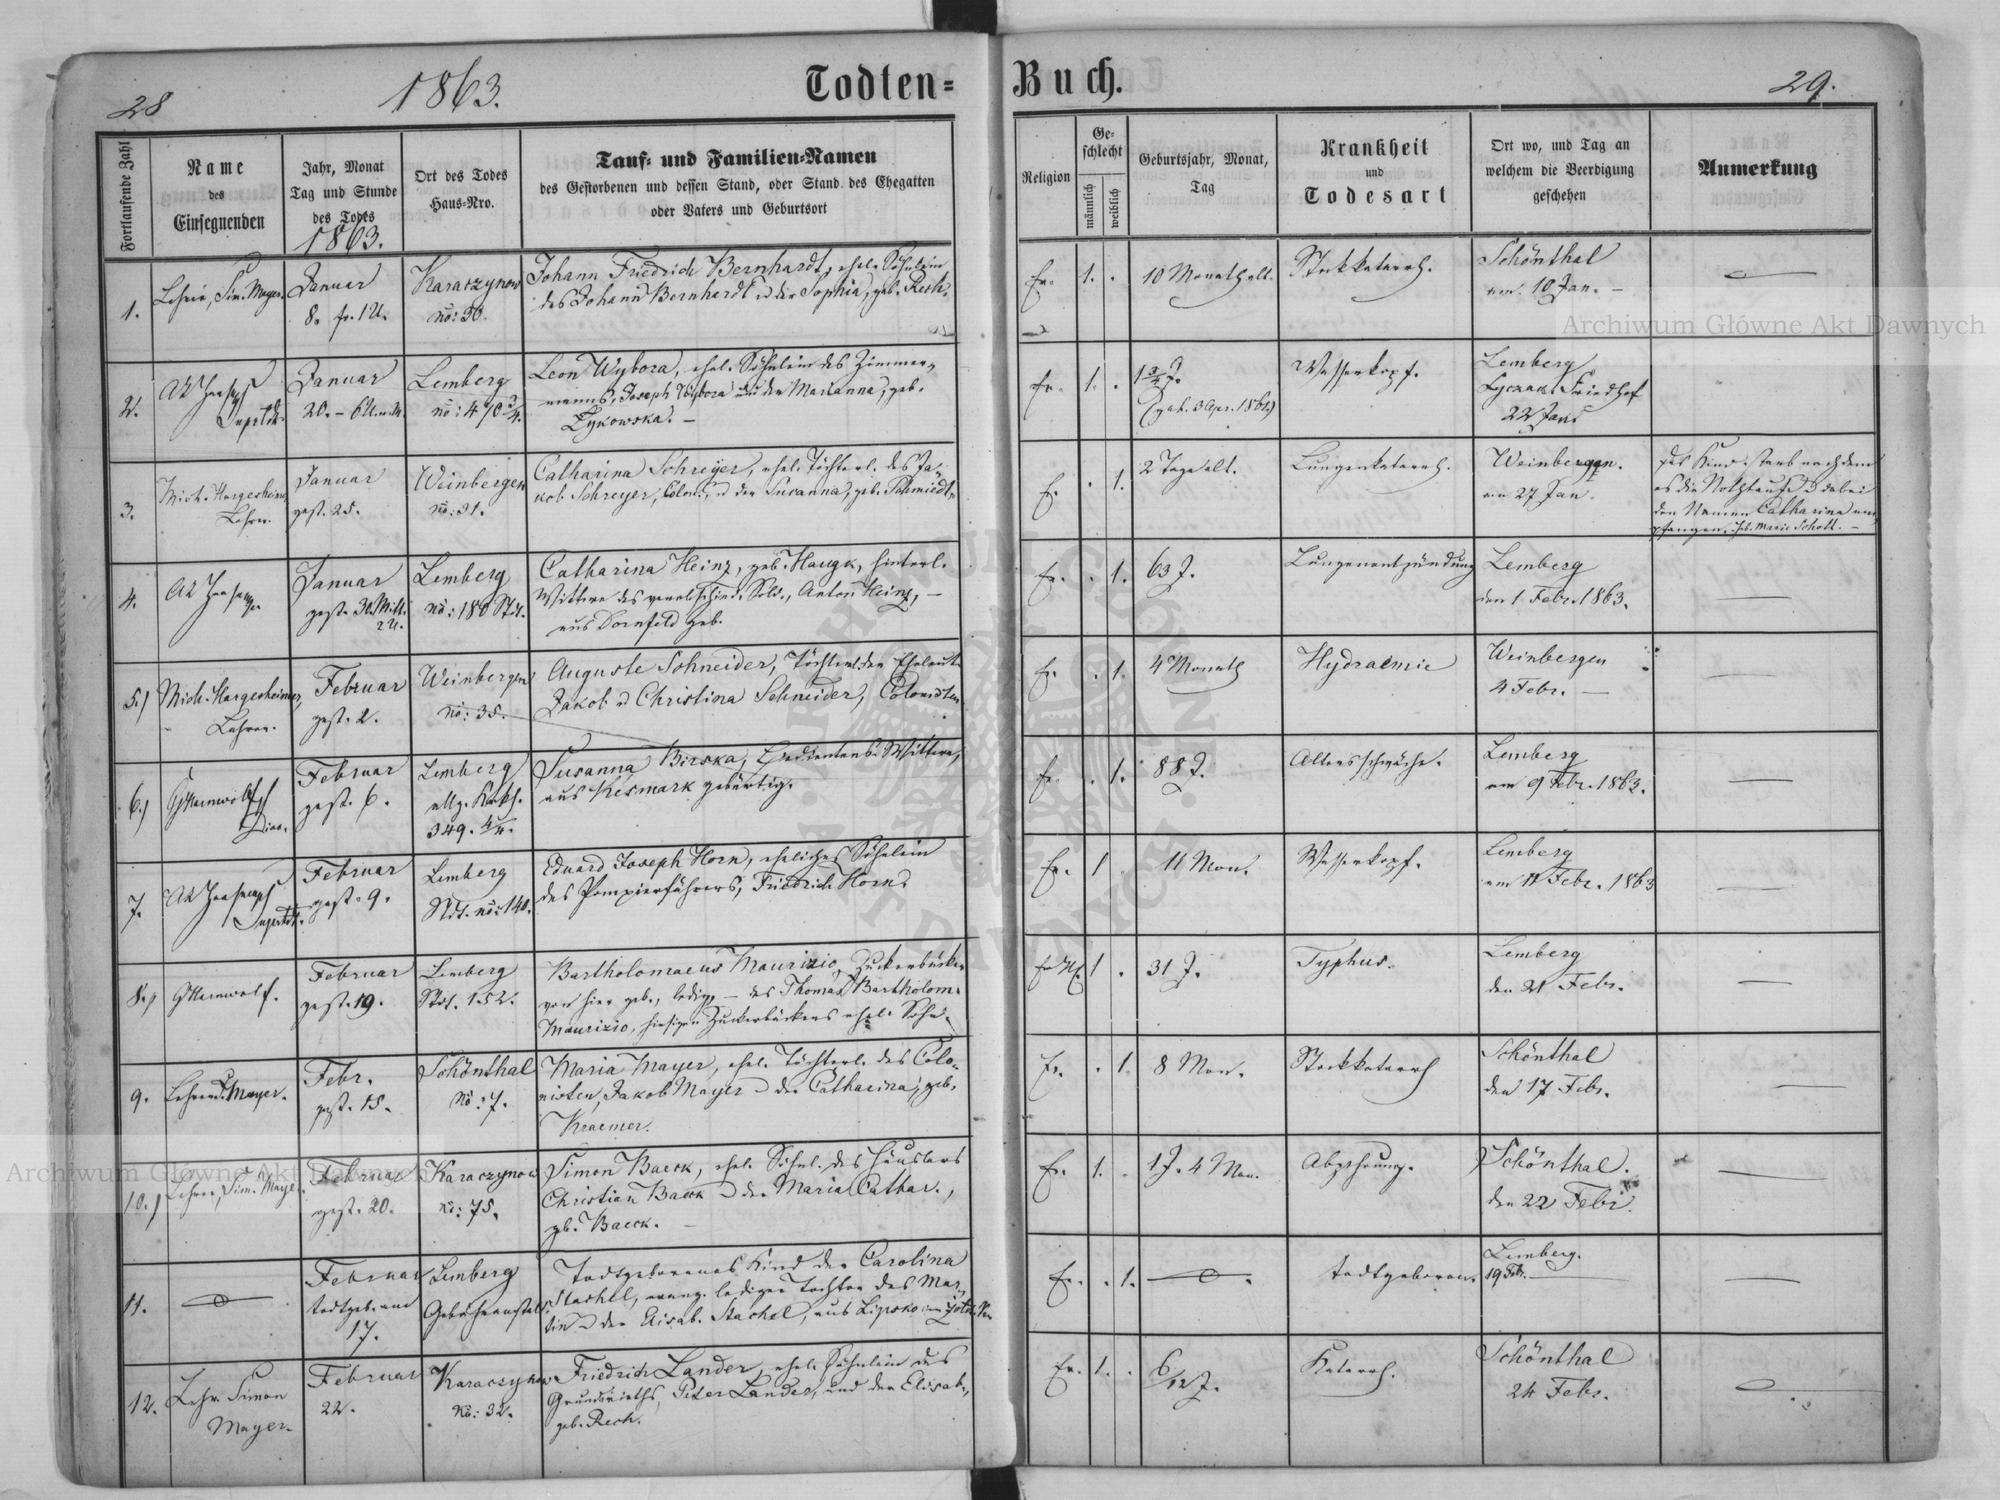 28
1863.
Todten=
Buch.
29.
Fortlaufende Zahl
Name
des
Einsegnenden
Jahr, Monat
Tag und Stunde
des Todes
1863.
Ort des Todes
Haus=Nro.
Tauf= und Familien=Namen
des Gestorbenen und dessen Stand, oder Stand des Ehegatten
oder Vaters und Geburtsort
Religion
Ge=
schlecht
männlich
weiblich
Geburtsjahr, Monat,
Tag
Krankheit
und
Todesart
Ort wo, und Tag an
welchem die Beerdigung
geschehen
Anmerkung
1.
Lehrer, Sim. Mayer.
Januer
8. fr. 1 U.
Karaczynow
no: 30.
Johann Friedrich Bernhardt, ehel. Söhnlein
des Johann Bernhardt u der Sophia, geb. Rech.
Ev.
1.
10 Monath alt.
Stickkatarrh.
Schönthal
am 10 Jan. –
2.
Januar
20. – 6 U.
Lemberg
no: 470 3/4.
Leon Wybora, ehel. Söhnlein des Zimmer=
manns, Joseph Wybora und der Marianna, geb.
Zykowska. –
Ev.
1.
1 3/4 J.
(geb. 3 Apr. 1861.)
Wasserkopf.
Lemberg
Lyczak. Friedhof
22 Jan.
3.
Mich. Hargesheimer
Lehrer.
Januar
gest. 25.
Weinbergen
no: 31.
Catharina Schreyer, ehel. Töchterl. des Ja=
kob Schreyer, Colon. u der Susanna, geb. Schmiedt.
E.
1.
2 Tage alt.
Lungenkatarrh.
Weinbergen.
am 27 Jan.
Das Kind starb nachdem
es die Nothtaufe u dabei
den Namen Catharina em=
pfangen. Heb. Marie Scholl. –
4.
Januar
gest. 30
2 U.
Lemberg
no: 180 Stdt.
Catharina Heinz, geb. Haugk, hinterl.
Wittwe des verabschied. Sold., Anton Heinz, –
aus Dornfeld geb.
Ev.
1.
63 J.
Lungenentzündung
Lemberg
den 1 Febr. 1863.
5.)
Mich. Hargesheimer,
Lehrer.
Februar
gest. 2.
Weinbergen
no: 35.
Auguste Schneider, Töchterl. der Eheleute
Jakob u Christina Schneider, Colonisten
Ev.
1.
4 Monath
Hydraemie
Weinbergen
4 Febr. –
6.)
Februar
gest. 6.
Lemberg
allg. Krkhs.
349. 4/4.
Susanna Birska, Bedientens=Wittwe,
aus Kesmark gebürtig.
Ev.
1.
88 J.
Altersschwäche.
Lemberg
am 9 Febr. 1863.
7.
Februar
gest. 9.
Lemberg
Stdt. no: 140.
Eduard Joseph Horn, eheliches Söhnlein
des Pompierführers, Friedrich Horn.
Ev.
1
11 Mon.
Wasserkopf.
Lemberg
am 11 Febr. 1863
8.)
GHarnwolf.
Februar
gest. 19.
Lemberg
Stdt. 152.
Bartholomaeus Maurizio, Zuckerbäcker
von hier geb., ledig, – des Thomas Bartholom.
Maurizio, hiesigen Zuckerbäckers ehel. Sohn.
1
31 J.
Typhus.
Lemberg
den 21 Febr.
9.
Lehrer Mayer.
Febr.
gest. 15.
Schönthal
No: 7.
Maria Mayer, ehel. Töchterl. des Colo=
nisten, Jakob Mayer u der Catharina, geb.
Kraemer.
Ev.
1.
8 Mon.
Stickkatarrh
Schönthal
den 17 Febr.
10.)
Lehrer, Sim. Mayer.
Februar
gest. 20.
Karaczynow
no: 75.
Simon Baeck, ehel. Söhnl. des Häuslers
Christian Baeck u der Maria Cathar.,
geb. Baeck. –
Ev.
1.
1 J. 4 Mon.
Abzehrung.
Schönthal.
den 22 Febr.
11.
Februar
todtgeboren
17.
Lemberg
Gebähranstalt.
Todtgeborenes Kind der Carolina
Stachel, evang. lediger Tochter des Mar=
tin u der Elisab. Stachel, aus Lipsko
Ev.
1.
todtgeboren.
Lemberg.
19 Feb.
12.
Lehr. Simon
Mayer.
Februar
22.
Karaczynow
No: 32.
Friedrich Lander, ehel. Söhnlein des
Grundwirths, Peter Lander, und der Elisab.,
geb. Rech.
Ev.
1.
6/12 J.
Katarrh.
Schönthal
24 Febr.
Archiwum Główne Akt Dawnych
Archiwum Główne Akt Dawnych
ARCHIWUM GŁÓWNE AKT DAWNYCH